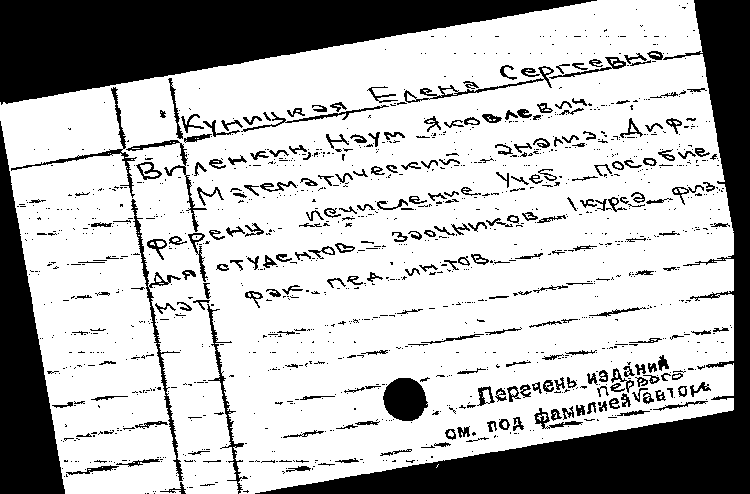 Куницкая, Елена Сергеевна
Виленкин, Наум Яковлевич
Математический анализ. Диф-
ференц. исчисление Учеб. пособие
для студентов-заочников I курса физ.-
мат. фак. пед. ин-тов
Перечень изданий
первого
см. под фамилией автора